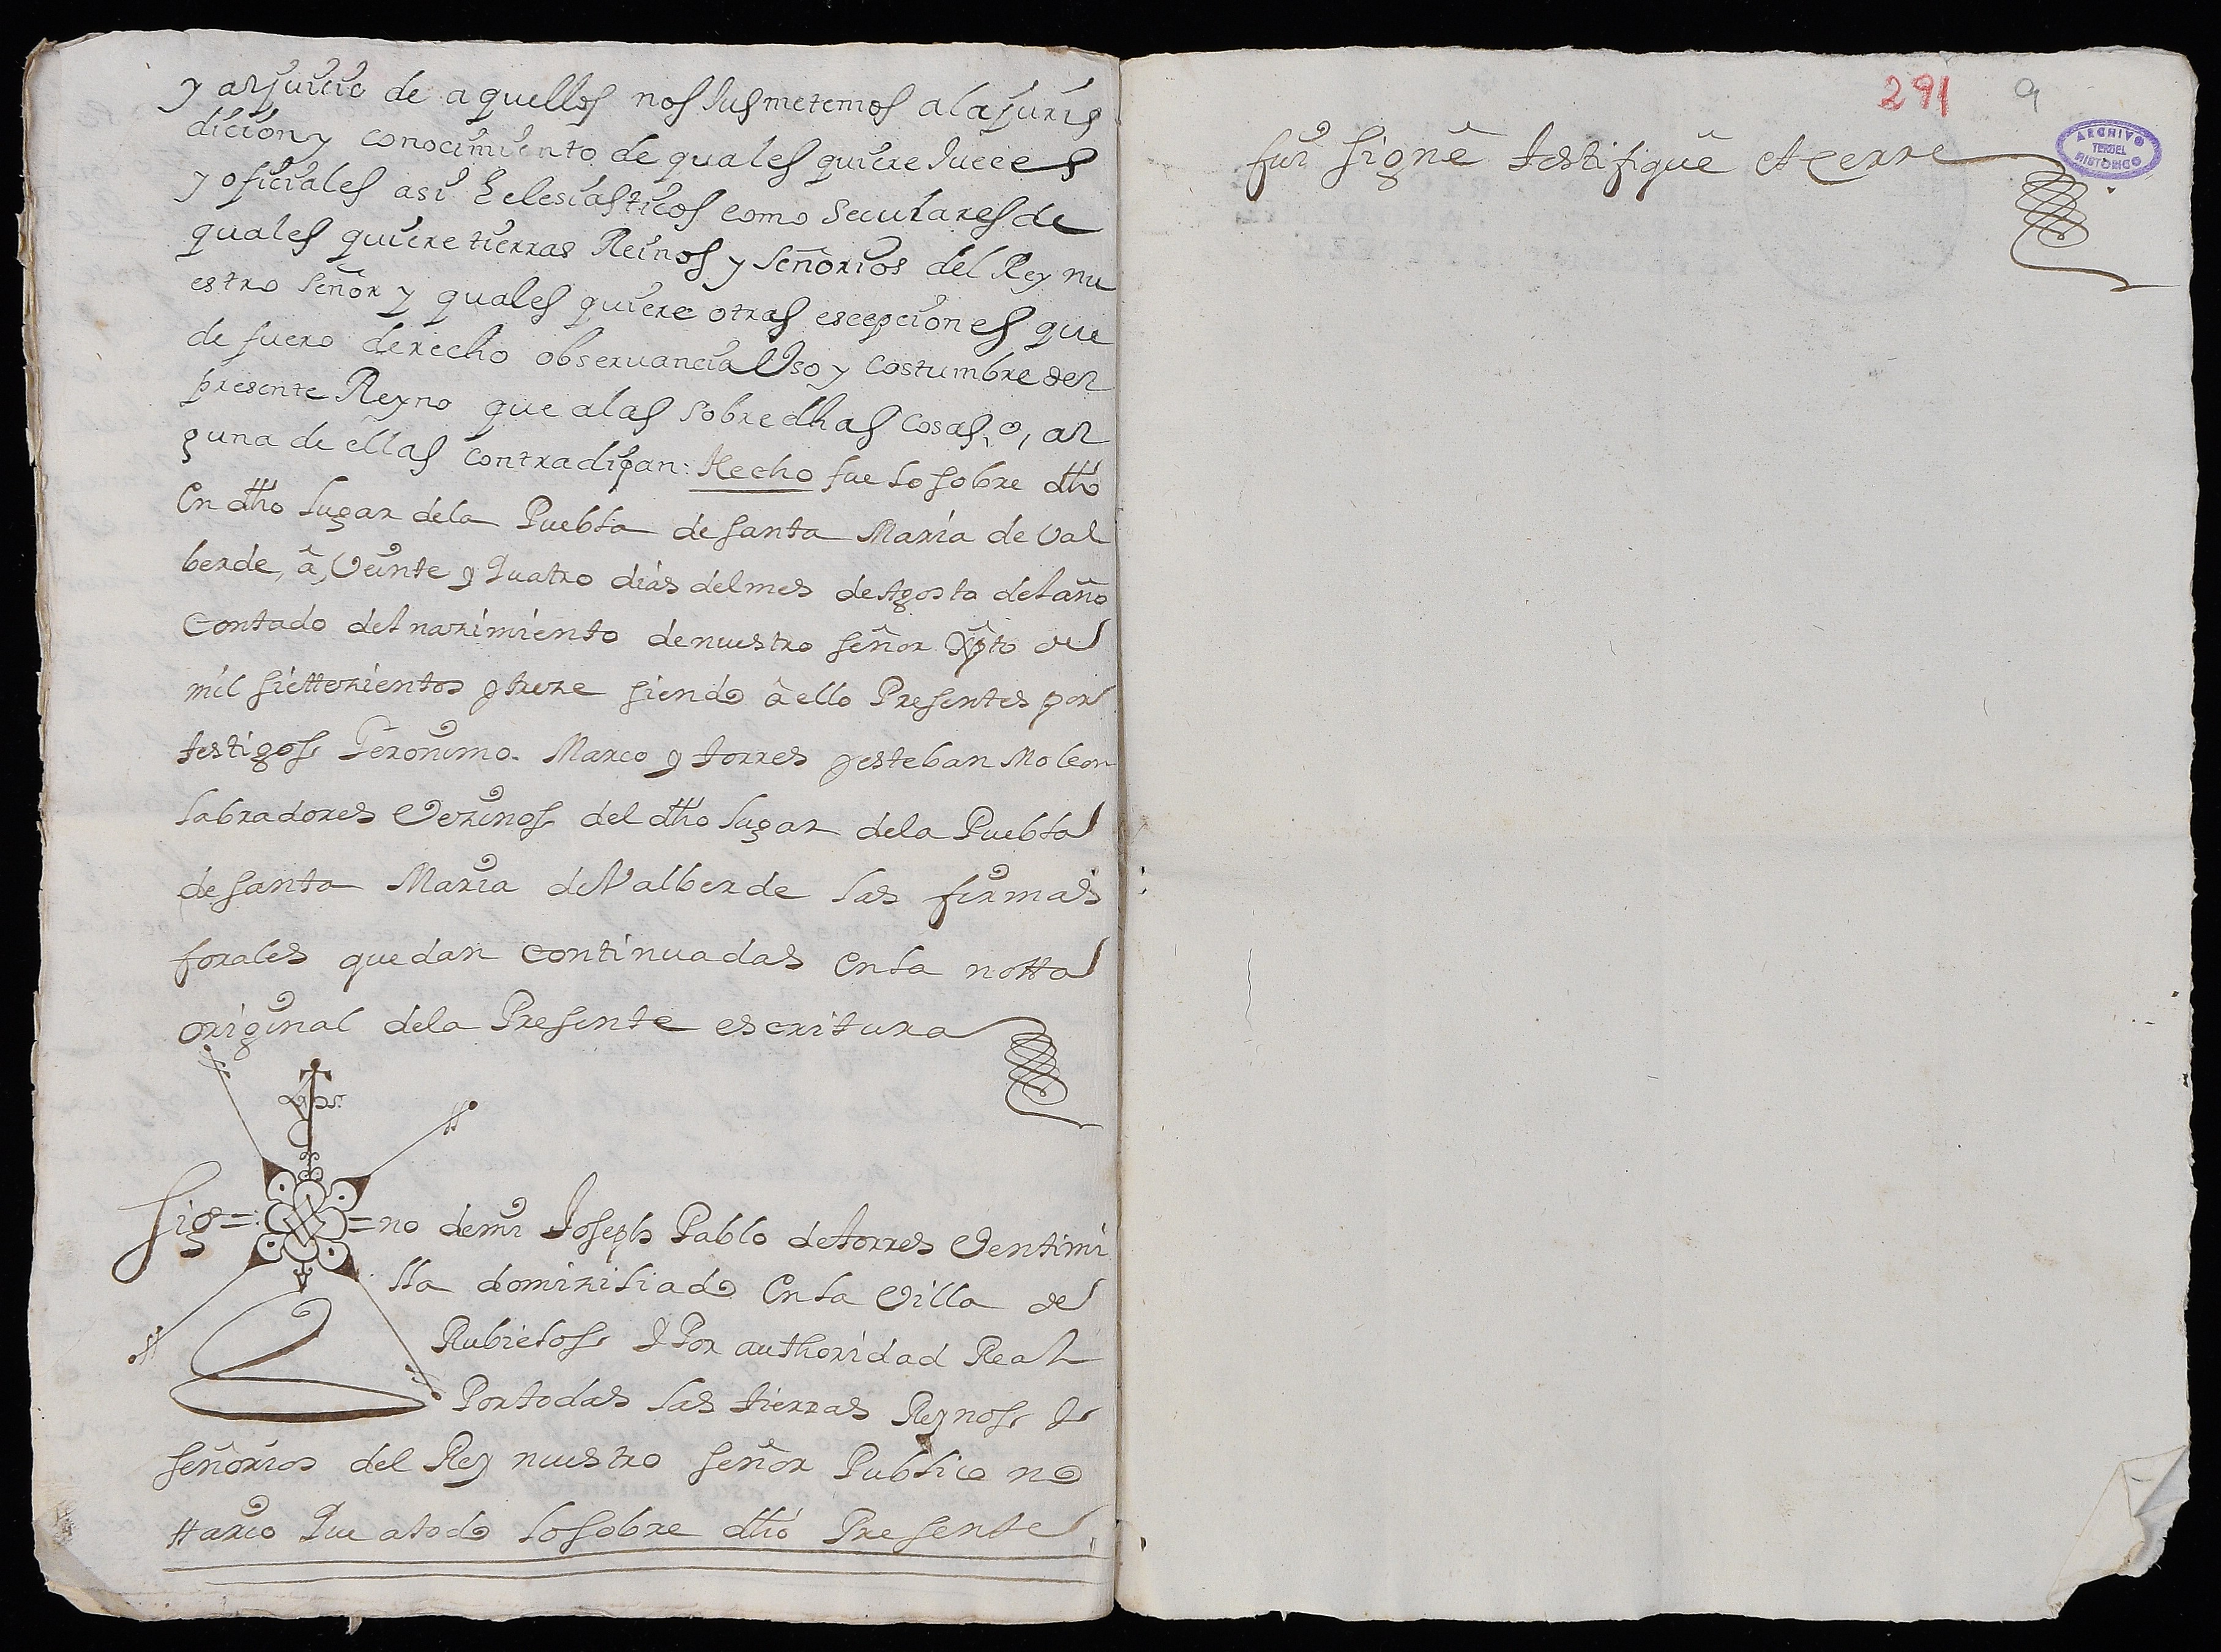 y al juicio de aquellos nos Susmetemos a la juris
dicion y conocimiento de quales quiere Jueces
y oficiales asi Eclesiasticos como Seculares de
quales quiere tierras Reinos y Señorios del Rey nu
estro Señor y quales quiere otras escepciones que
de fuero derecho observancia Uso y costumbre del
presente Reyno que a las sobredhas cosas, o, al
guna de ellas contradigan: Hecho fue lo sobre dho
En dho Lugar dela Puebla de Santa Maria de Val
berde, â, Veinte y Quatro dias del mes de Agosto del año
Contado del nazimiento de nuestro señor Xpto de
mil siettezientos y treze siendo â ello Presentes por
testigos Geronimo Marco y torres y esteban Moleon
labradores Vezinos del dho lugar dela Puebla
de santa Maria de Valberde las firmas
forales quedan continuadas En la notta
original dela Presente escritura
Sig= =no de mi Joseph Pablo de torres Ventimi
lla domiziliado En la Villa de
Rubielos y Por authoridad Real
Por todas las tierras Reynos y
señorios del Rey nuestro señor Publico no
ttario Que a todo lo sobre dho Presente
291 9
fui signê testifiquê et cerre
ARCHIVO
TERUEL
HISTORICO